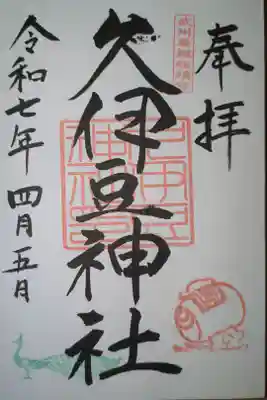 奉拝
久伊豆神社
令和七年四月五日